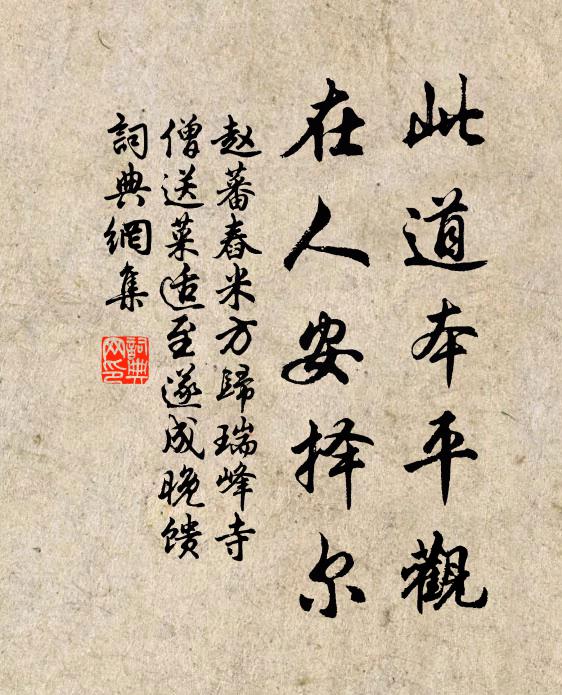 此道本平觀
在人安择尔
赵蕃舂米方歸瑞峰寺
僧送菜适至遂成晚馈
詞典網集
詞典
网印